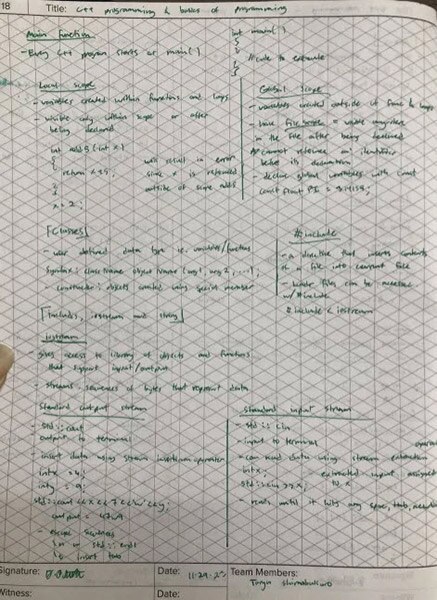 18
Title: C++ programming & basics of programming
Main function
- Every C++ program starts at main()
int main()
{
}
Local scope
- variables created within functions and loops
- visible only within scope or after
being declared
int add5(int x)
{
return x+5;
}
x = 2;
will result in error
since x is referenced
outside of scope add5
Global scope
- variables created outside of func & loops
- have file scope = visible anywhere
in the file after being declared
* cannot reference an identifier
before its declaration
- declare global variables with const
const float PI = 3.14159;
[Classes]
- user defined data type i.e. variables/functions
syntax: className objectName (arg1, arg2, ...);
- constructor: objects created using special member
#include
- a directive that inserts contents
of a file into current file
- files can be accessed
w/ #include
#include < iostream
[Includes, iostream and string]
iostream
- gives access to library of objects and functions
that support input/output
- streams: sequences of bytes that represent data
Standard output stream
- std::cout
output to terminal
- insert data using stream insertion operator
int x = 4;
int y = 9;
std::cout << x << 7 << 'w' << y;
output = 47w9
- escape sequences
\n or std::endl
\t insert tab
Standard input stream
- std::cin
- input to terminal
- can read data using stream extraction
int x;
std::cin >> x;
extracted input assigned
to x
- reads until it hits any space, tab, newline
Signature:
Date: 11-29-22
Team Members:
Witness:
Date: